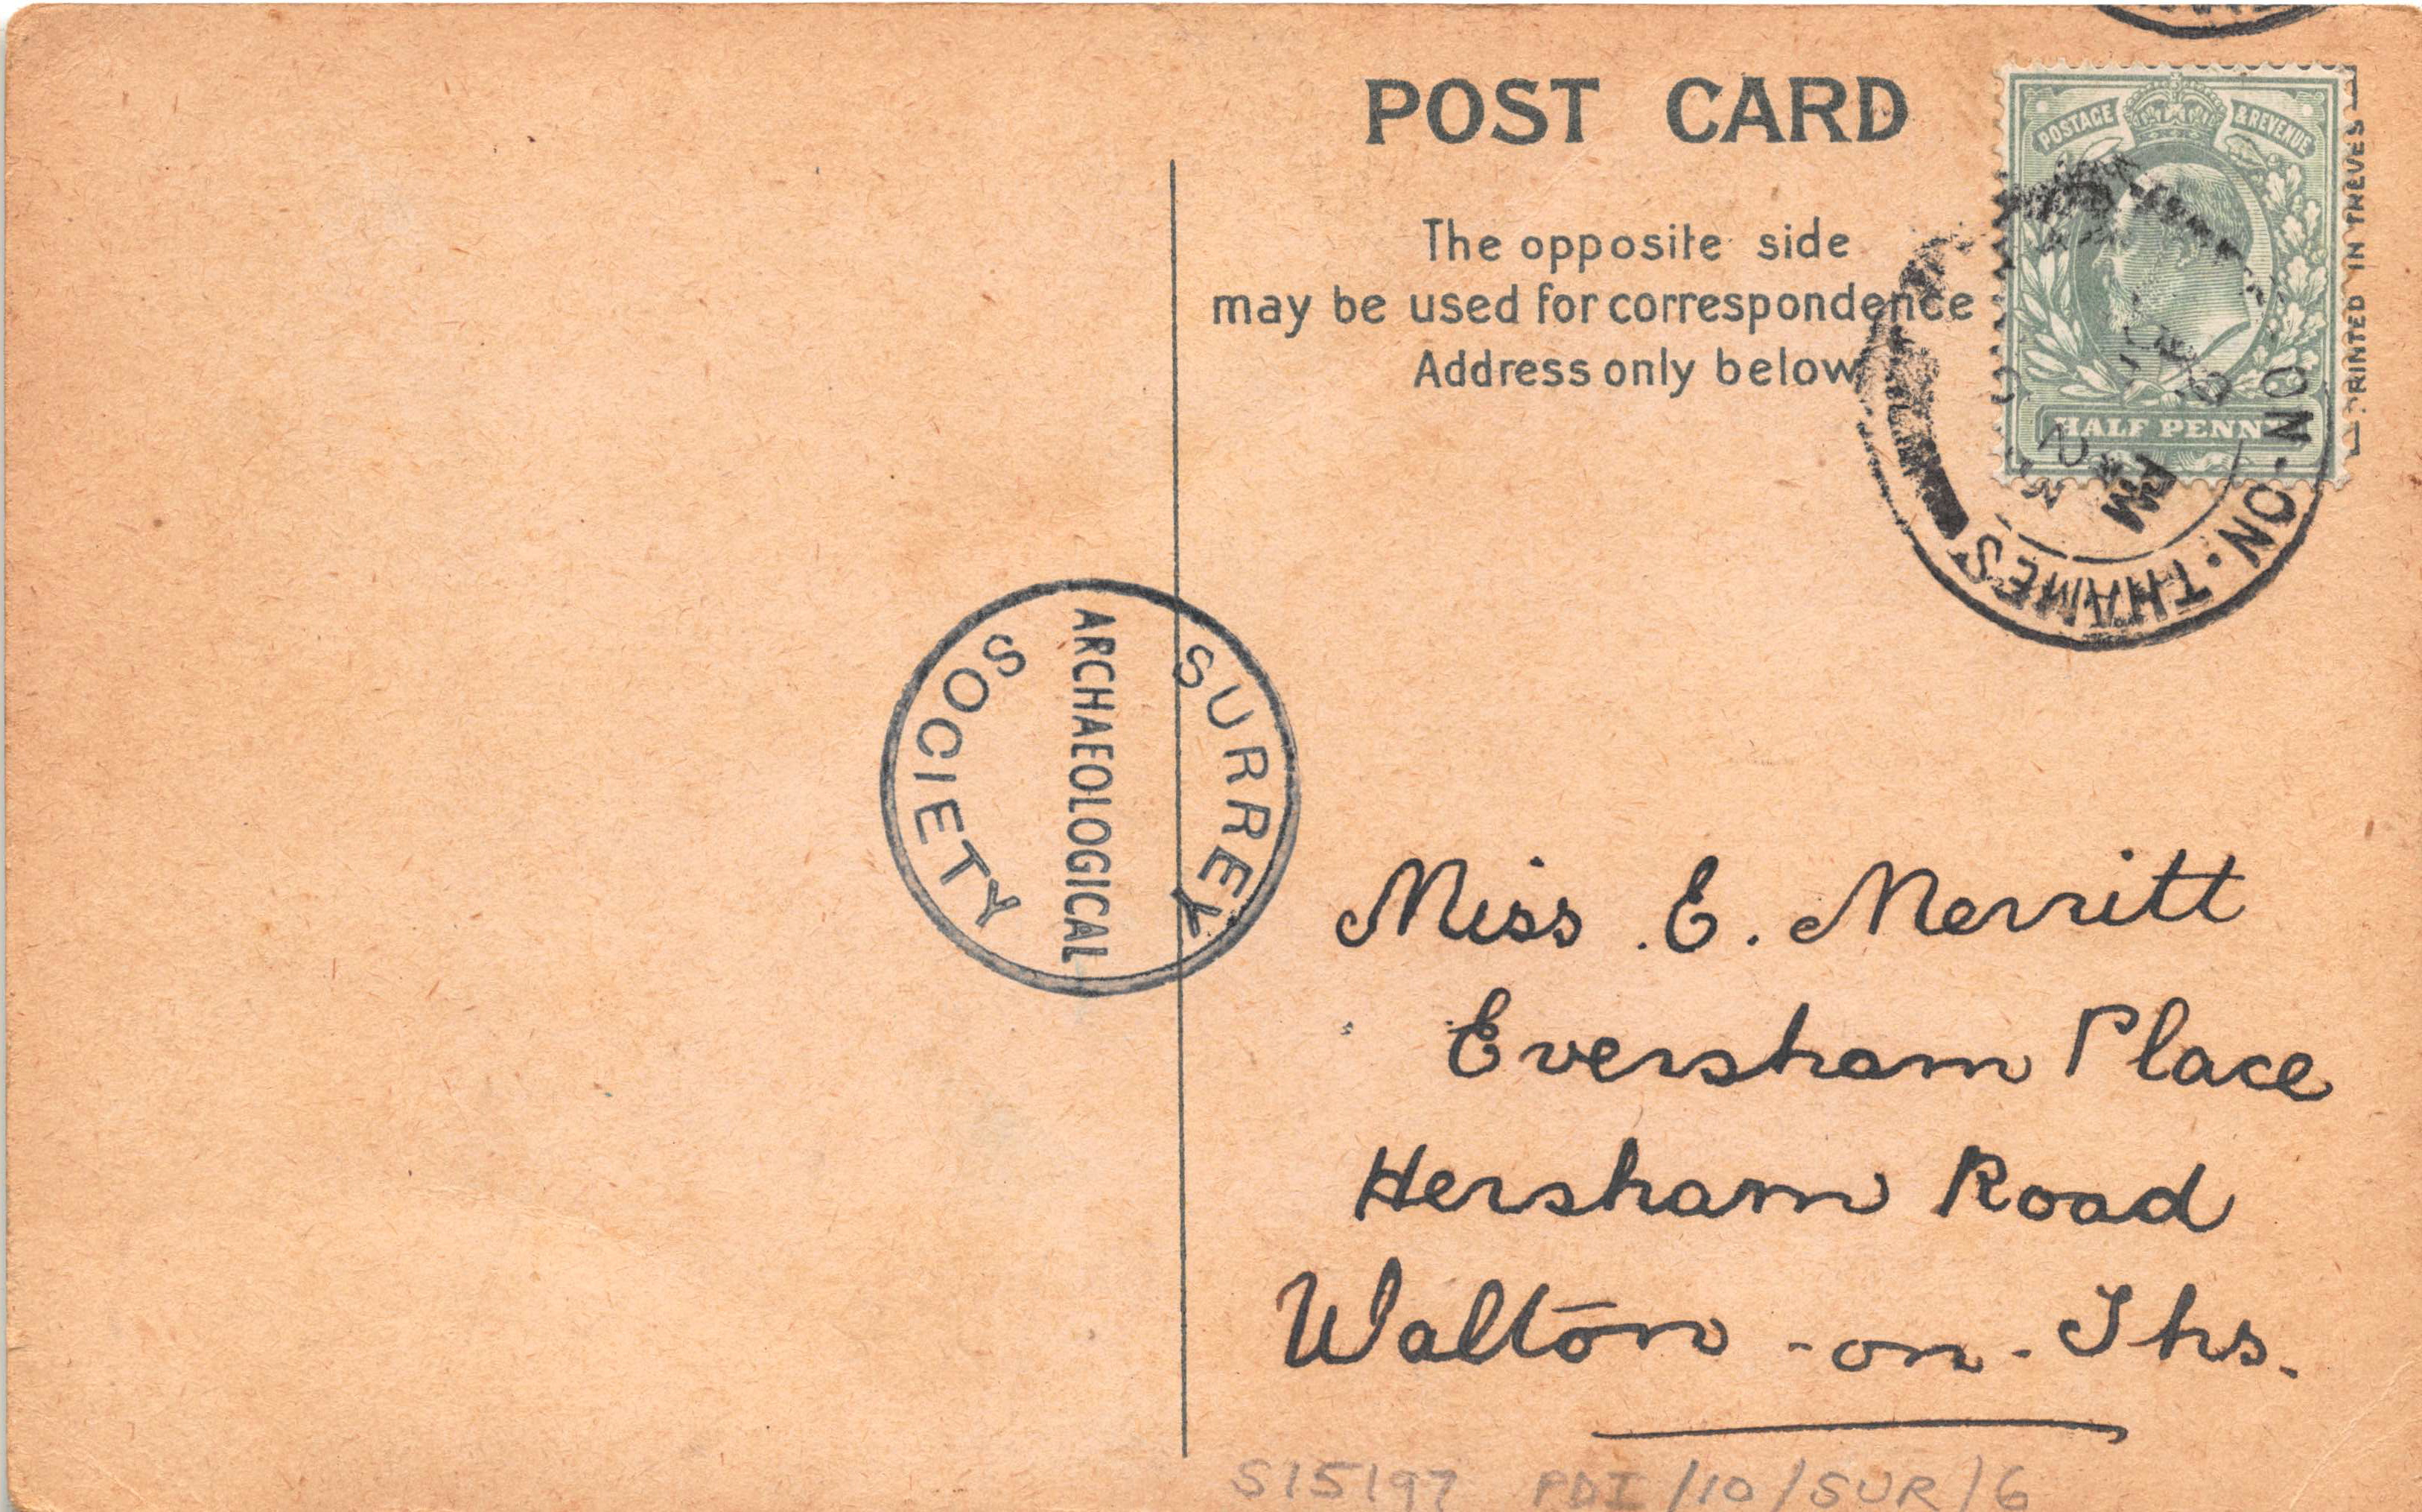 POST CARD
The opposite side
may be used for correspondence
Address only below
POSTAGE & REVENUE
HALF PENNY
PRINTED IN TREVES
ON-ON-THAMES
PM
SURREY
ARCHAEOLOGICAL
SOCIETY
Miss . E. Merritt
Eversham Place
Hersham Road
Walton -on- Ths.
S15197 PDI/10/SUR/6